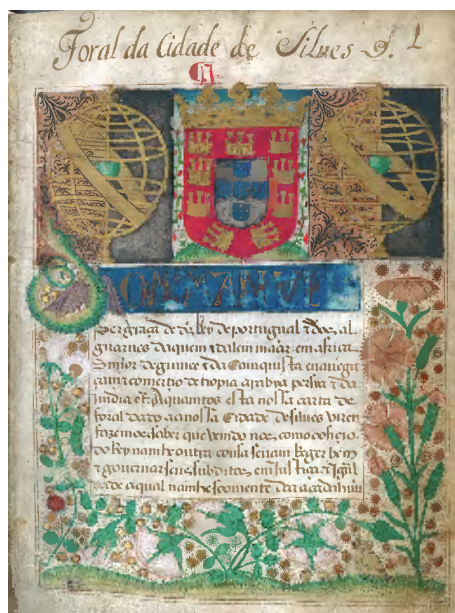 Foral da Cidade de Silues
DOM MANVEL
Per graça de ds. Rey de portugal & dos al
guarues daquem & dalem maar em africa
Senhor de guinee & da Comquista & nauega
cam & comercio de tiopia arabya persia & da
india
A quamtos esta nossa carta de
foral dado aa nossa Cidade de silues virem
fazemos saber que vendo nos como ofiçio
do Rey nam he outra cousa senam Reger bem
& governar seus subditos em justiça & igual
dade a qual nam he soomente dar a cada huu